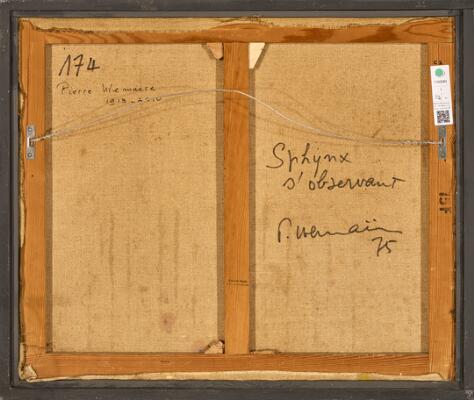 174
Pierre Wemaëre
1913-2010
Sphynx
s'observant
P. Wemaëre
75